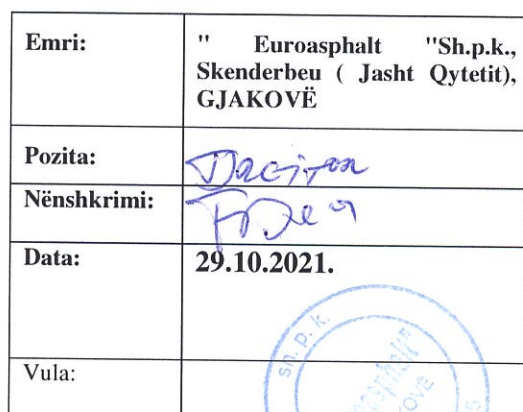 Emri:
" Euroasphalt "Sh.p.k.,
Skenderbeu ( Jasht Qytetit),
GJAKOVË
Pozita:
Nënshkrimi:
Data:
29.10.2021.
Vula:
sh. p. k.